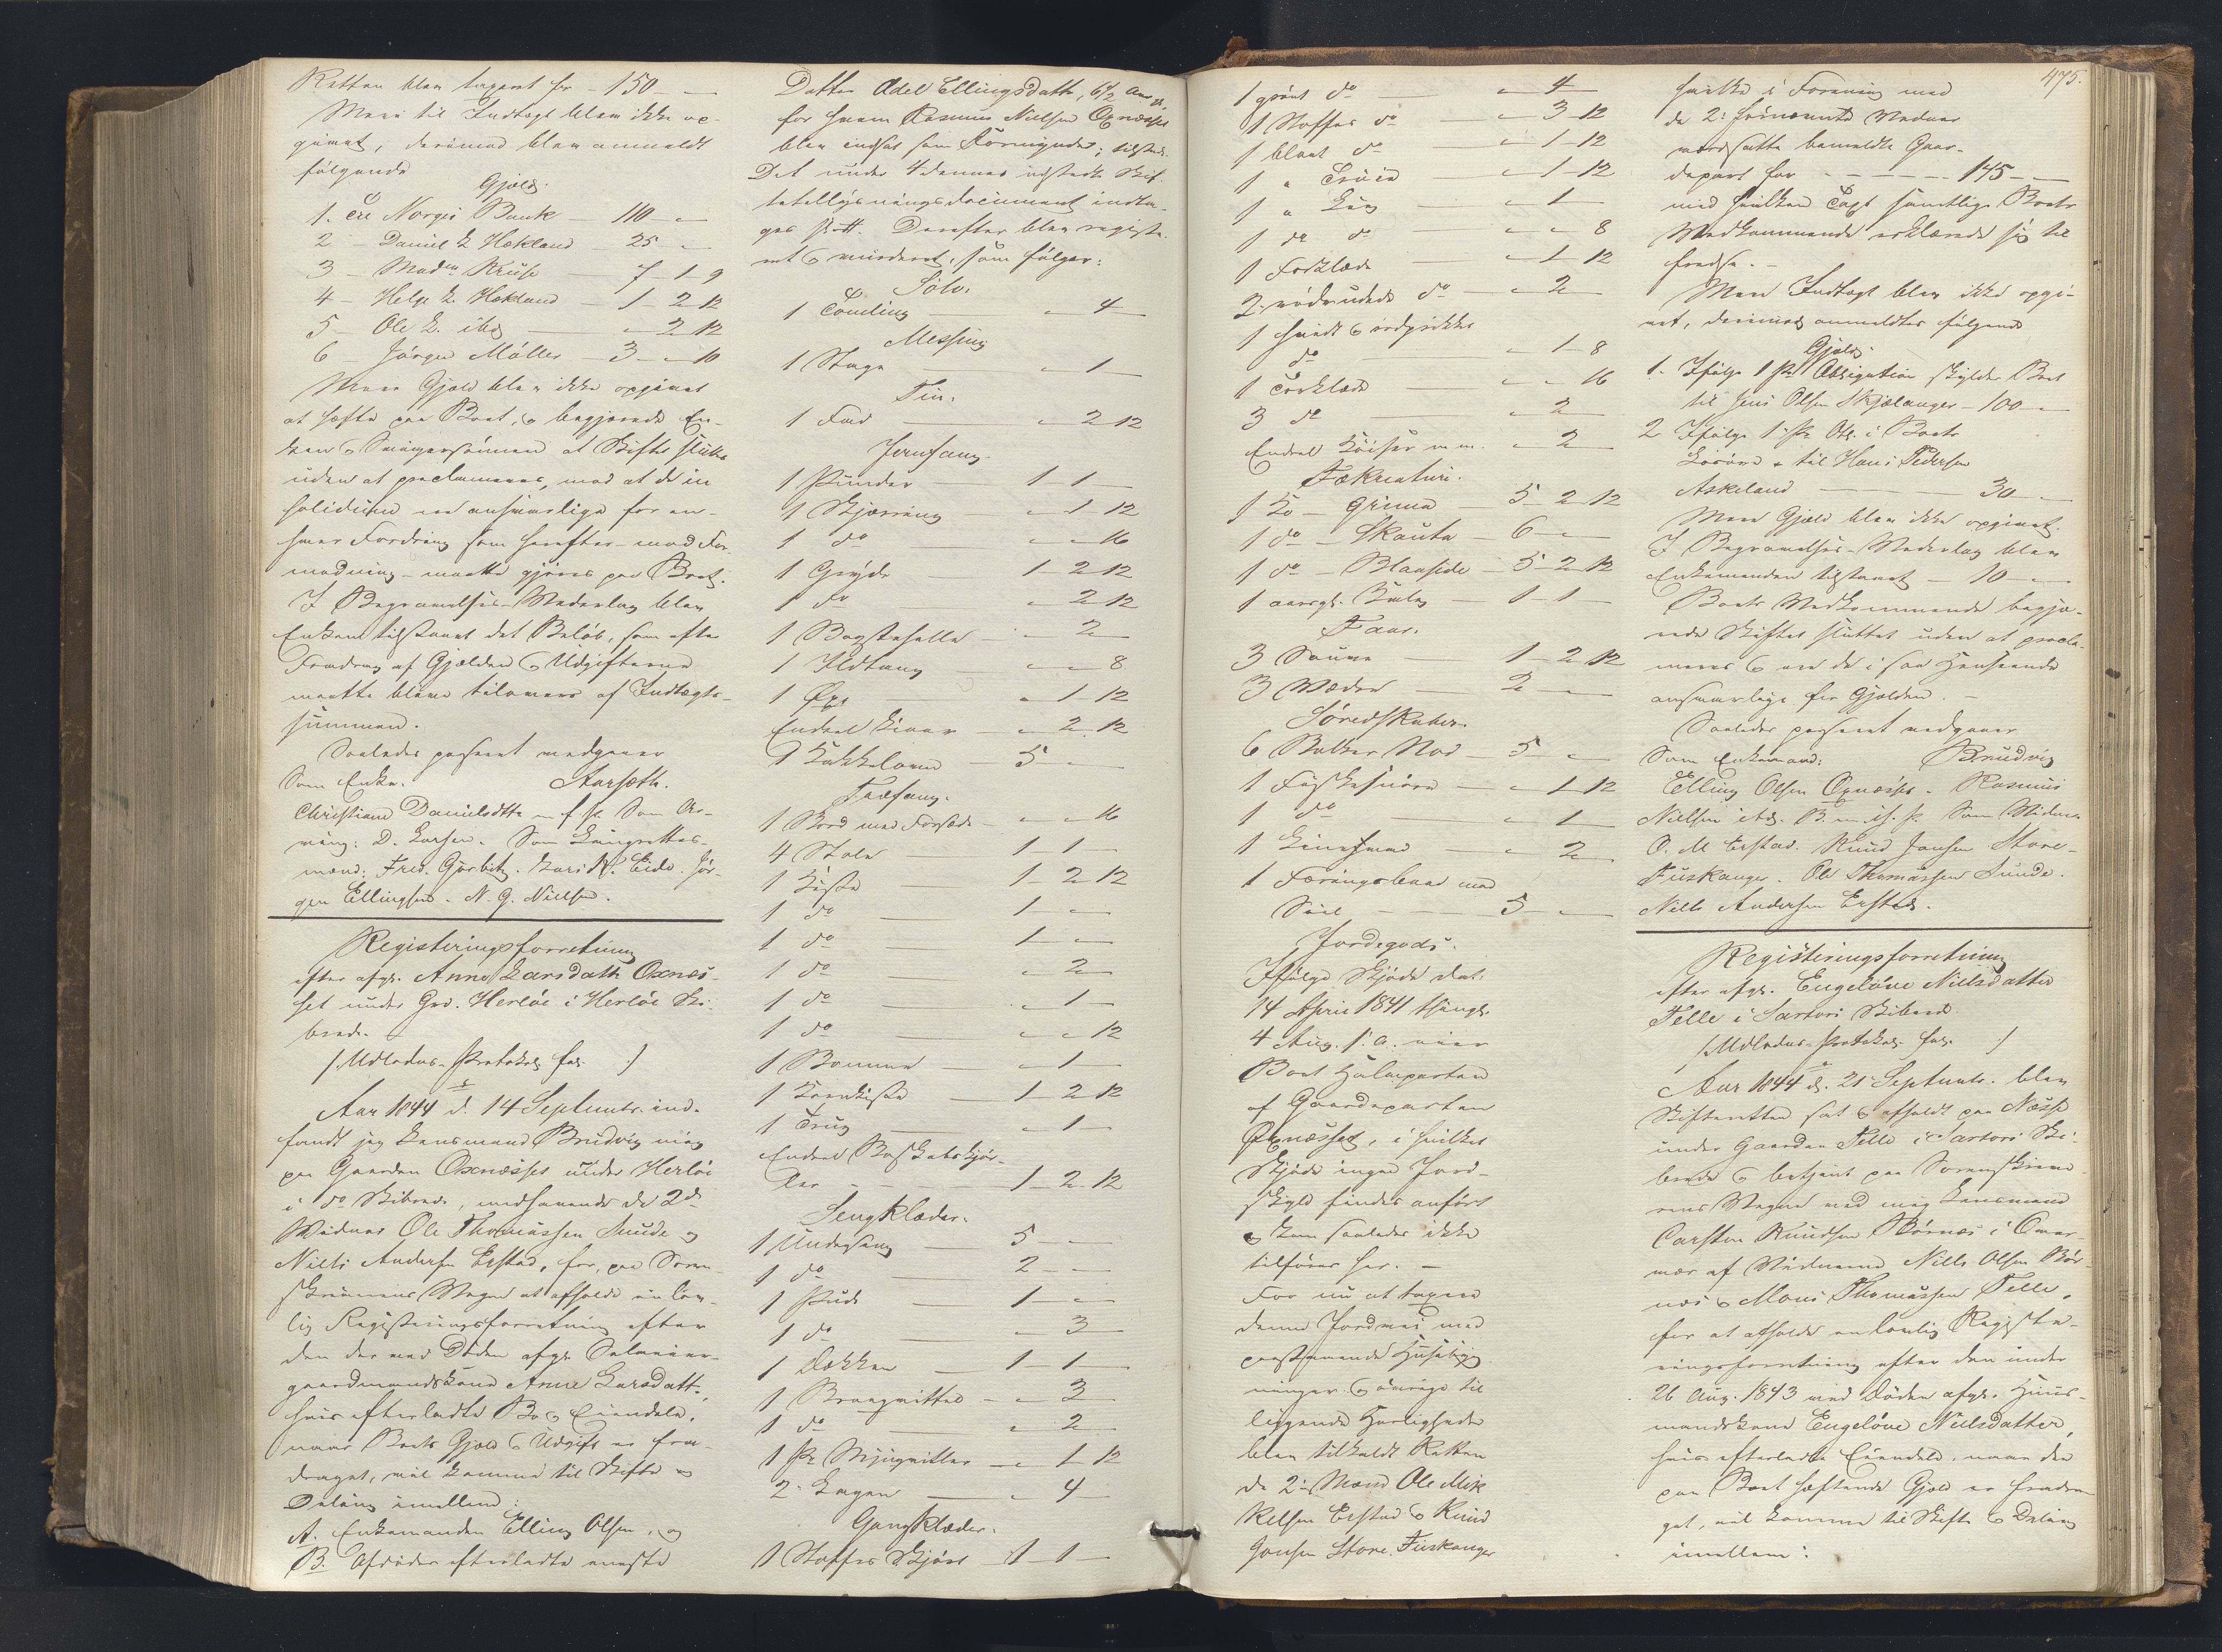 Retten blev taxeret for - 150 - -
Mere til Indtægt blev ikke op-
givet, derimod blev anmeldt
følgende
Gjeld.
1. Til Norges Bank - 110 -
2 - Daniel L Hekland - 25 -
3 - Madm Kruse - 7 - 1 - 9
4 - Helge L. Hekland - 1 - 2 - 12
5 - Ole L. ibd - 2 - 12
6 - Jørgen Møller - 3 - - 10
Mere Gjeld blev ikke opgivet
at hefte paa Boet, og begjærede En-
ken og Svigersønnen at Skiftet sluttes
uden at proclameres, mod at de in
solidum ere ansvarlige for en-
hver Fordring som herefter - mod For-
modning - maatte gjøres paa Boet.
I Begravelses-Vederlag blev
Enken tilstaaet det Beløb, som efter
Fradrag af Gjelden og Udgifterne
maatte blive tilovers af Indtægts-
summen.
Saaledes passeret vedgaaer
Som Enke. Aarseth.
Christiane Danielsdtte m. f. P. Som Ar-
ving: D. Larsen. Som Laugrettes-
mænd: Fred. Garbitz. Lars N. Eide. Jør-
gen Ellingsen. N. G. Nielsen.
Registeringsforretning
efter afg. Anne Larsdatt Oxnæs-
set under Grd. Herløe i Herløe Ski-
brede.
/: Udlodns-Protokol fol. :/
Aar 1844 d. 14 Septembr. ind-
fandt jeg Lensmand Brudvig mig
paa Gaarden Oxnæsset under Herløe
i do Skibrede, medhavende de 2de
Vidner Ole Thomassen Sunde og
Niels Andersen Erstad, for, paa Soren-
skriverens Vegne at afholde en lov-
lig Registeringsforretning efter
den der ved Døden afg. Selveier-
gaardmandskone Anne Larsdatt.,
hvis efterladte Bo og Eiendele,
naar Boets Gjeld og Udgift er fra-
draget, vil komme til Skifte og
Deling imellem:
A. Enkemanden Elling Olsen, og
B. Afdødes efterladte eneste
Datter Adel Ellingsdatt, 6½ Aar gl.
for hvem Rasmus Nielsen Oxnæsset
blev indsat som Formynder; tilsted.
Det under 4 dennes udstedte Skif-
tetillysningsdocument indta-
ges Prot. Derefter blev registe-
ret og vurderet, som følger:
Sølv.
1 Tomling - 4 -
Messing
1 Stage - 1 -
Tin.
1 Fad - 2 - 12
Jernfang.
1 Punder 1 - 1 -
1 Skjæring - 1 - 12
1 do - - 16
1 Gryde 1 - 2 - 12
1 do - 2 - 12
1 Bagstehelle - 2 -
1 Ildtang - - 8
1 Øxe - 1 - 12
Endeel Liaar - 2 - 12
1 Kakkelovn - 5 - -
Træfang.
1 Bord med Forsæde - - 16
4 Stole 1 - 1 -
1 Kiste 1 - 2 - 12
1 do 1 - -
1 do 1 - -
1 do - 2 -
1 do - 1 -
1 do - - 12
1 Bomme - 1 -
1 Kornkiste 1 - 2 - 12
1 Trug - 1 -
Endeel Boskabskjør-
ler - 1 - 2 - 12
Sengklæder.
1 Underseng 5 - -
1 do 2 - -
1 Pude 1 - -
1 do - 3 -
1 Dækken 1 - 1 -
1 Brogvittel - 3 -
1 do - 2 -
1 Pr Vrjngvitler - 1 - 12
2 Lagen - 4 -
Gangklæder.
1 Stoffes Skjørt - 1 - 1 -
1 grønt do - 4 -
1 Stoffes do - 3 - 12
1 blaat do - 1 - 12
1 " Trøie - 1 - 12
1 " Liv - 1 -
1 do do - - 8
1 Forklæde - 1 - 12
2 rødrudede do - 2 -
1 hvidt og rødprikket
do - 1 - 8
1 Tørklæde - - 16
3 do - 2 -
Endeel Huer m.m. - 2 -
Fækreature.
1 Ko - Grima - 5 - 2 - 12
1 do - Skauta - 6 - -
1 do - Blaaside - 5 - 2 - 12
1 aarsgl. Kalv - 1 - 1 -
Faar.
3 Souer 1 - 2 - 12
3 Væder 2 - -
Søredskaber.
6 Bolker Nod - 5 - -
1 Fiskesnøre - 1 - 12
1 do - 1 -
1 Linehand - 2 -
1 Færingsbaad med
Seil 5 - -
Jordegods.
Ifølge Skjøde dat.
14 April 1841 thinglt.
4 Aug. s. a. eier
Boet Halvparten
af Gaardeparten
Oxnæsset, i hvilket
Skjøde ingen Jord-
skyld findes anført
og kan saaledes ikke
tilføres her. -
For nu at taxere
denne Jordvei med
paastaaende Husebyg-
ninger og øvrige til
liggende Herligheder
blev tilkaldt Retten
de 2de Mænd Ole Mik
kelsen Erstad og Knud
Jonsen Store-Fuskanger
475.
hvilke i Forening med
de 2de førnævnte Vidner
værdsatte bemeldte Gaar-
depart for - 145 - -
med hvilken Taxt samtlige Boets
Vedkommende erklærede sig til
freds. -
Mere Indtægt blev ikke opgi-
vet, derimod anmeldtes følgende
Gjeld.
1. Ifølge 1 Pr. Obligation skylder Boet
til Jens Olsen Skjælanger - 100 -
2 Ifølge 1 Pr. Obl. i Boets
Løsøre - til Hans Pedersen
Askeland 30 - -
Mere Gjæld blev ikke opgivet.
I Begravelses-Vederlag blev
Enkemanden tilstaaet - 10 - -
Boets Vedkommende begjæ-
rede Skiftet sluttet uden at procla-
meres og ere de i saa Henseende
ansvarlige for Gjelden. -
Saaledes passeret vedgaaer
Som Enkemand: Brudvig
Elling Olsen Oxnæsset. Rasmus
Nielsen ibd. B. m. i. f. P. Som Vidner
O. M Erstad. Knud Jonsen Store-
Fuskanger. Ole Thomassen Sunde.
Niels Andersen Erstad.
Registeringsforretning
efter afg. Engeløve Nielsdatter
Telle i Sartori Skibrede
/: Udlodns-Protokol fol. :/
Aar 1844 d. 21 Septembr. blev
Skifteretten sat og afholdt paa Næsse
under Gaarden Telle i Sartori Ski-
brede og betjent paa Sorenskrive-
rens Vegne ved mig Lensmand
Carsten Knudsen Børnes i Over-
vær af Vidnerne Niels Olsen Bør-
nes og Mons Thomassen Telle,
for at afholde en lovlig Registe-
ringsforretning efter den under
26 Aug. 1843 ved Døden afg. Huus-
mandskone Engeløve Nielsdatter,
hvis efterladte Eiendele, naar den
paa Boet heftende Gjeld er fradra-
get, vil komme til Skifte og Deling
imellem: